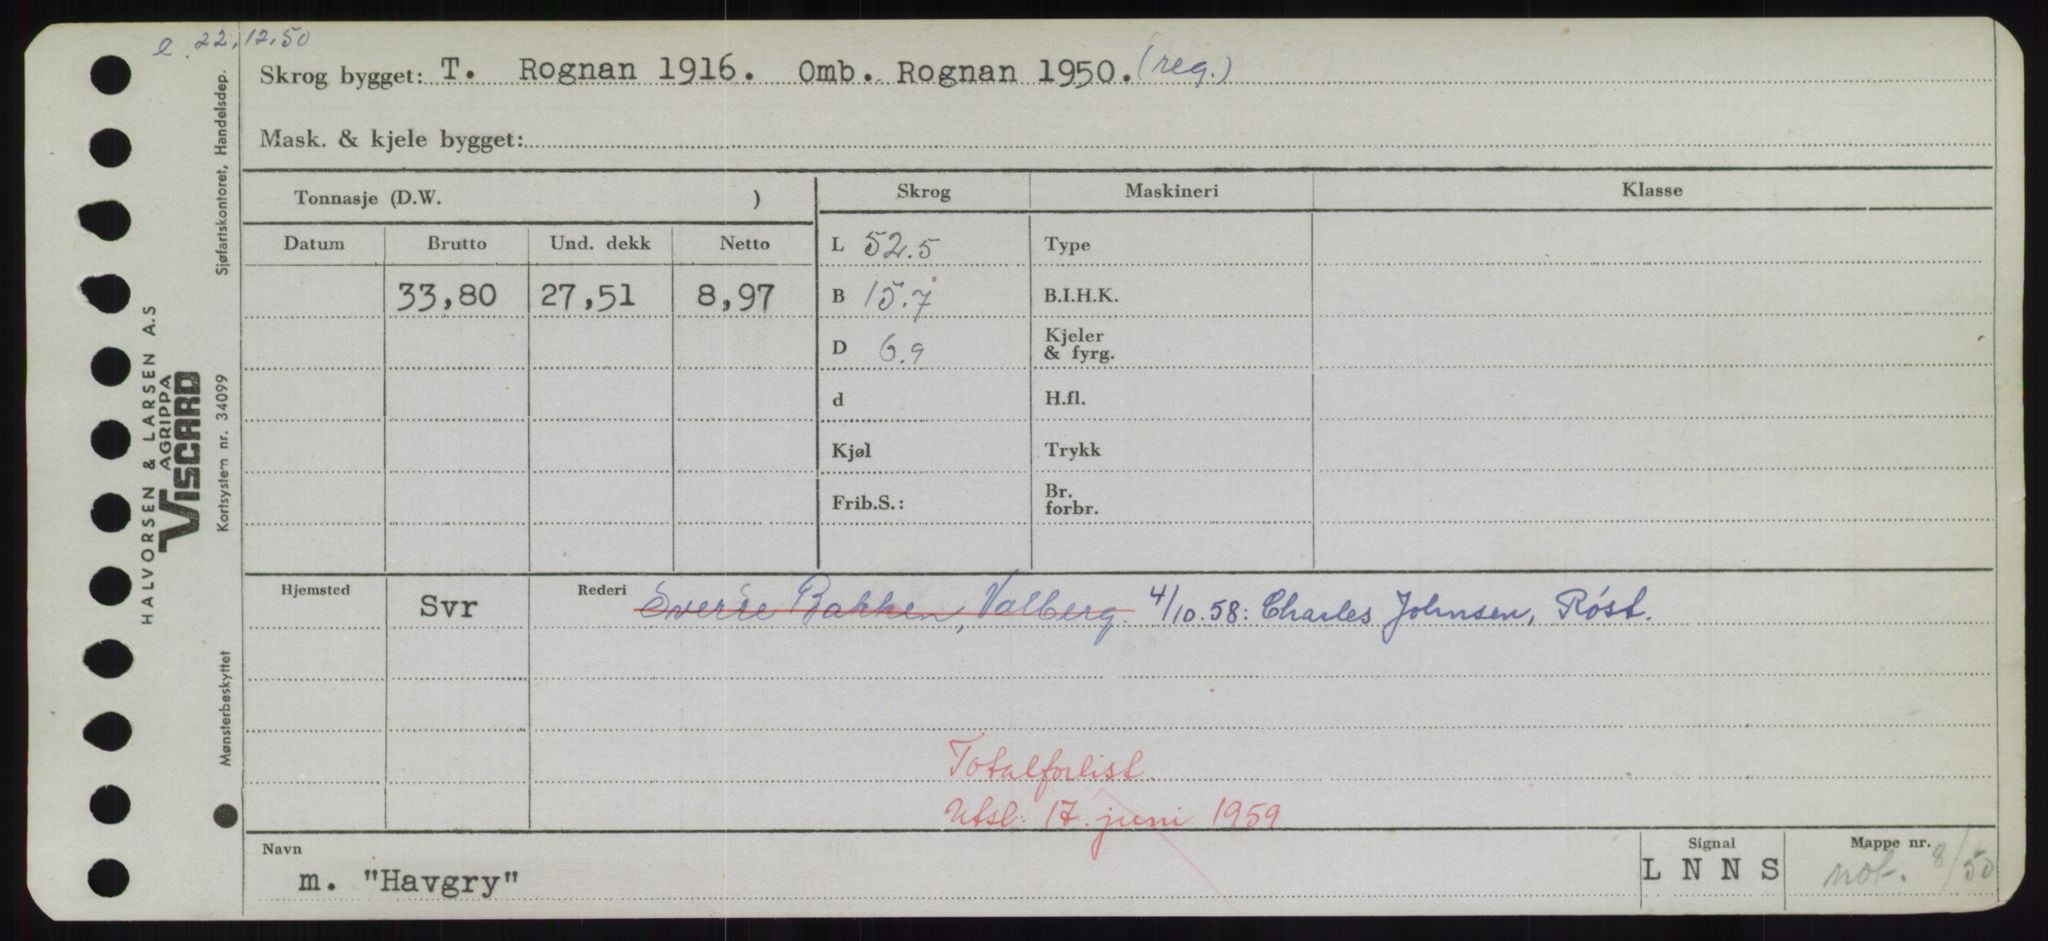 e. 22,12,50
Skrog bygget: T. Rognan 1916. Omb. Rognan 1950. (reg.)
Mask. & kjele bygget:
Tonnasje (D.W. )
Skrog Maskineri Klasse
Datum Brutto Und. dekk Netto
L 52.5 Type
33,80 27,51 8,97
B 15.7 B.I.H.K.
D 6.9 Kjeler & fyrg.
d H.fl.
Kjøl Trykk
Frib.S.: Br. forbr.
Hjemsted Svr Rederi Sverre Bakken, Valberg. 4/10.58: Charles Johnsen, Røst.
Totalforlist.
Utsl. 17. juni 1959
Navn m. "Havgry"
Signal L N N S
Mappe nr. not. 8/50
HALVORSEN & LARSEN A.S
AGRIPPA
VISCARD
Sjøfartskontoret, Handelsdep.
Kortsystem nr. 34099
Mønsterbeskyttet